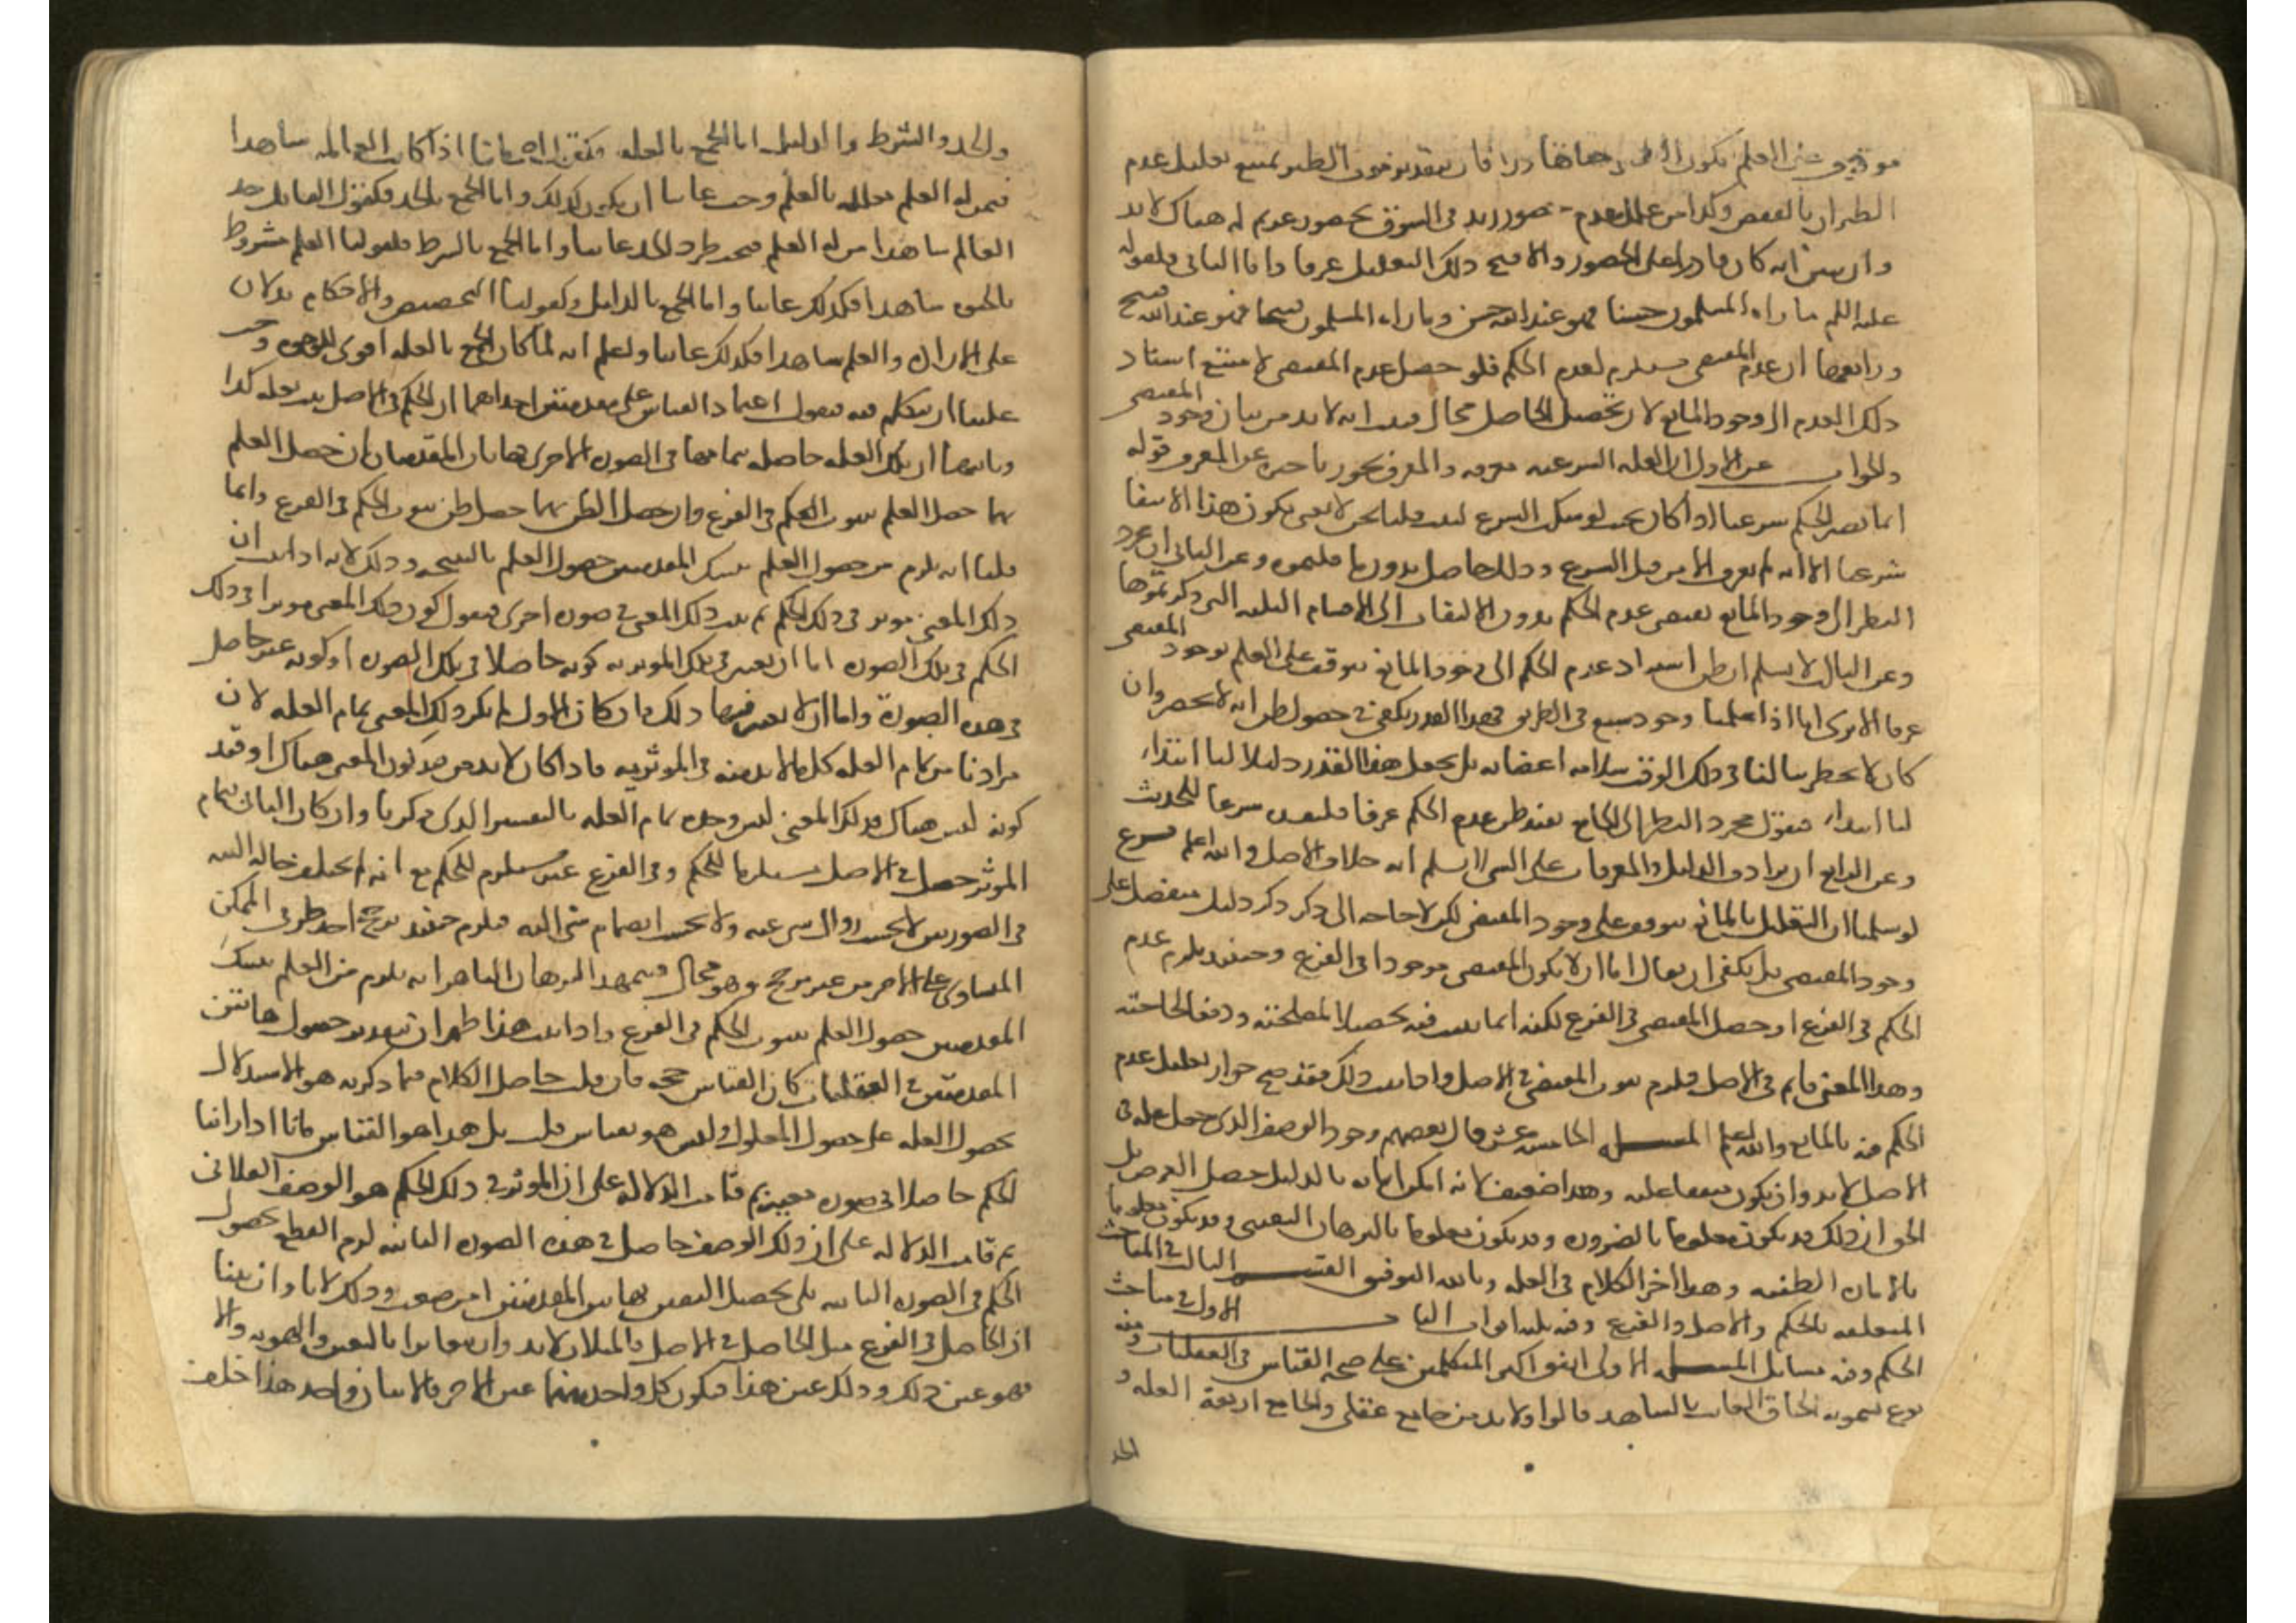 موقوف على العلم بكون الطير قادرا فان بتقدير موت الطير يمتنع تعليل عدم
الطيران بالقفص وكذا من علل عدم حضور زيد في السوق بحضور غريم له هناك لا بد
وان يبين انه كان قادرا على الحضور والا قبح ذلك التعليل عرفا واما الثاني فلقوله
عليه السلم ما راه المسلمون حسنا فهو عند الله حسن وما راه المسلمون قبيحا فهو عند الله قبيح
ورابعها ان عدم المقتضي مستلزم لعدم الحكم فلو حصل عدم المقتضي لامتنع اسناد
ذلك العدم الى وجود المانع لان تحصيل الحاصل محال فثبت انه لا بد من بيان وجود المقتضي
والجواب عن الاول ان العلة الشرعية معرفة والمعرف يجوز تاخيره عن المعرف قوله
انما يصير الحكم شرعيا اذا كان بحيث لو سكت الشرع لثبت قلنا نحن لا نعني بكون هذا الانتفا
شرعيا الا انه لم يعرف الا من قبل الشرع وذلك حاصل بدون ما قلتموه وعن الثاني ان مجرد
النظر الى وجود المانع يقتضي عدم الحكم بدون الالتفات الى الاقسام الثلثة التي ذكرتموها
وعن الثالث لا نسلم ان ظن اسناد عدم الحكم الى وجود المانع يتوقف على العلم بوجود المقتضي
عرفا الا ترى انا اذا علمنا وجود سبع في الطريق فهذا القدر يكفي في حصول ظن انه لا يحضر وان
كان لا يخطر ببالنا في ذلك الوقت سلامة اعضائه بل يجعل هذا القدر دليلا لنا ابتداء
لنا ابتداء فنقول مجرد النظر الى المانع يفيد ظن عدم الحكم عرفا فليفد شرعا للحديث
وعن الرابع ان ترادف الدليل والمعرفات على الشي لا نسلم انه خلاف الاصل والله اعلم فرع
لو سلمنا ان التعليل بالمانع يتوقف على وجود المقتضي لكن لا حاجة الى ذكر ذكر دليل منفصل على
وجود المقتضي بل يكفي ان يقال اما ان لا يكون المقتضي موجودا في الفرع وحينئذ يلزم عدم
الحكم في الفرع او حصل المقتضي في الفرع لكنه انما يثبت فيه تحصيلا لمصلحته ودفعا لحاجته
وهذا المعنى قايم في الاصل فيلزم ثبوت المقتضي في الاصل واذا ثبت ذلك فقد صح جواز تعليل عدم
الحكم فيه بالمانع والله اعلم المسئلة الخامسة عشر قال بعضهم وجود الوصف الذي جعل علة في
الاصل لا بد وان يكون متفقا عليه وهذا ضعيف لانه لما امكن اثباته بالدليل حصل الغرض بل
الحق ان ذلك قد يكون معلوما بالضرورة وقد يكون معلوما بالبرهان اليقيني وقد يكون معلوما
بالامارات الظنية وهذا اخر الكلام في العلة وبالله التوفيق القسم الثالث في المباحث
المتعلقة بالحكم والاصل والفرع وفيه ثلثة ابواب الباب الاول في مباحث
الحكم وفيه مسائل المسئلة الاولى اتفق اكثر المتكلمين على صحة القياس في العقليات ومنه
نوع يسمونه الحاق الغائب بالشاهد قالوا ولا بد من جامع عقلي والجامع اربعة العلة و
الحد
والحد والشرط والدليل اما الجمع بالعلة فكقول اصحابنا اذا كانت العالمية شاهدا
فيمن له العلم معللة بالعلم وجب غائبا ان يكون كذلك واما الجمع بالحد فكقول القائل حد
العالم شاهدا من له العلم فيجب طرد الحد غائبا واما الجمع بالشرط فلقولنا العلم مشروط
بالحيوة شاهدا فكذلك غائبا واما الجمع بالدليل فكقولنا التخصيص والاحكام يدلان
على الارادة والعلم شاهدا فكذلك غائبا واعلم انه لما كان الجمع بالعلة اقوى الوجوه وجب
علينا ان نتكلم فيه فنقول اعتماد القياس على مقدمتين احداهما ان الحكم في الاصل ثبت لعلة كذا
وثانيهما ان تلك العلة حاصلة بتمامها في الصورة الاخرى فهاتان المقدمتان ان حصل العلم
بهما حصل العلم بثبوت الحكم في الفرع وان حصل الظن بهما حصل ظن ثبوت الحكم في الفرع وانما
قلنا انه يلزم من حصول العلم بتينك المقدمتين حصول العلم بالنتيجة وذلك لانه اذا ثبت ان
ذلك المعنى موثر في ذلك الحكم ثم ثبت ذلك المعنى في صورة اخرى فنقول كون ذلك المعنى موثرا في ذلك
الحكم في تلك الصورة اما ان يعتبر في تلك الموثرية كونه حاصلا في تلك الصورة او كونه غير حاصل
في هذه الصورة واما ان لا يعتبر فيها ذلك فان كان الاول لم يكن ذلك المعنى تمام العلة لان
مرادنا من تمام العلة كل ما لا بد منه في الموثرية فاذا كان لا بد من قيد كون المعنى هناك او قيد
كونه ليس هناك فذلك المعنى ليس وحده تمام العلة بالتفسير الذي ذكرنا وان كان الثاني فتمام
الموثر حصل في الاصل مستلزما للحكم وفي الفرع غير مستلزم للحكم مع انه لم يختلف حاله البتة
في الصورتين لا بحسب زوال شي عنه ولا بحسب انضمام شي اليه فيلزم حينئذ ترجح احد طرفي الممكن
المساوي على الاخر من غير مرجح وهو محال فبهذا البرهان الباهر انه يلزم من العلم بتينك
المقدمتين حصول العلم بثبوت الحكم في الفرع واذا ثبت هذا ظهر ان بتقدير حصول هاتين
المقدمتين في العقليات كان القياس حجة فان قلت حاصل الكلام فيما ذكرته هو الاستدلال
بحصول العلة على حصول المعلول وليس هو بقياس قلت بل هذا هو القياس فانا اذا راينا
الحكم حاصلا في صورة معينة ثم قامت الدلالة على ان الموثر في ذلك الحكم هو الوصف الفلاني
ثم قامت الدلالة على ان ذلك الوصف حاصل في هذه الصورة الثانية لزم القطع بحصول
الحكم في الصورة الثانية بلى تحصيل اليقين بهاتين المقدمتين امر صعب وذلك لانا وان بينا
ان الحاصل في الفرع مثل الحاصل في الاصل فالمثلان لا بد وان يتغايرا بالتعين والهوية والا
فهو عين ذلك وذلك عين هذا فيكون كل واحد منهما عين الاخر فالاثنان واحد هذا خلف